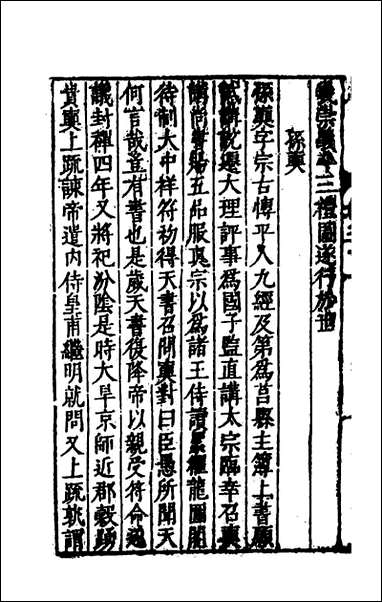 義宗義卒三禮圖遂行於世
孫奭
孫奭字宗古博平人九經及第為莒縣主簿上書願
試講說遷大理評事為國子監直講太宗臨幸召奭
講尚書賜五品服真宗以為諸王侍讀累擢龍圖閣
待制大中祥符初得天書召問奭對曰臣愚所聞天
何言哉豈有書也是歲天書復降帝以親受符命遂
議封禪四年又將祀汾陰是時大旱京師近郡穀踴
貴奭上疏諫帝遣內侍皇甫繼明就問又上疏孰謂